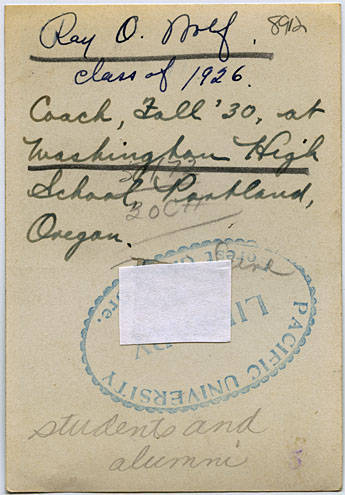 Ray O. Wolf.
8912
class of 1926.
Coach, Fall '30, at
Washington High
School, Portland,
Oregon.
20CH
PACIFIC UNIVERSITY
Forest Grove, Ore.
students and
alumni